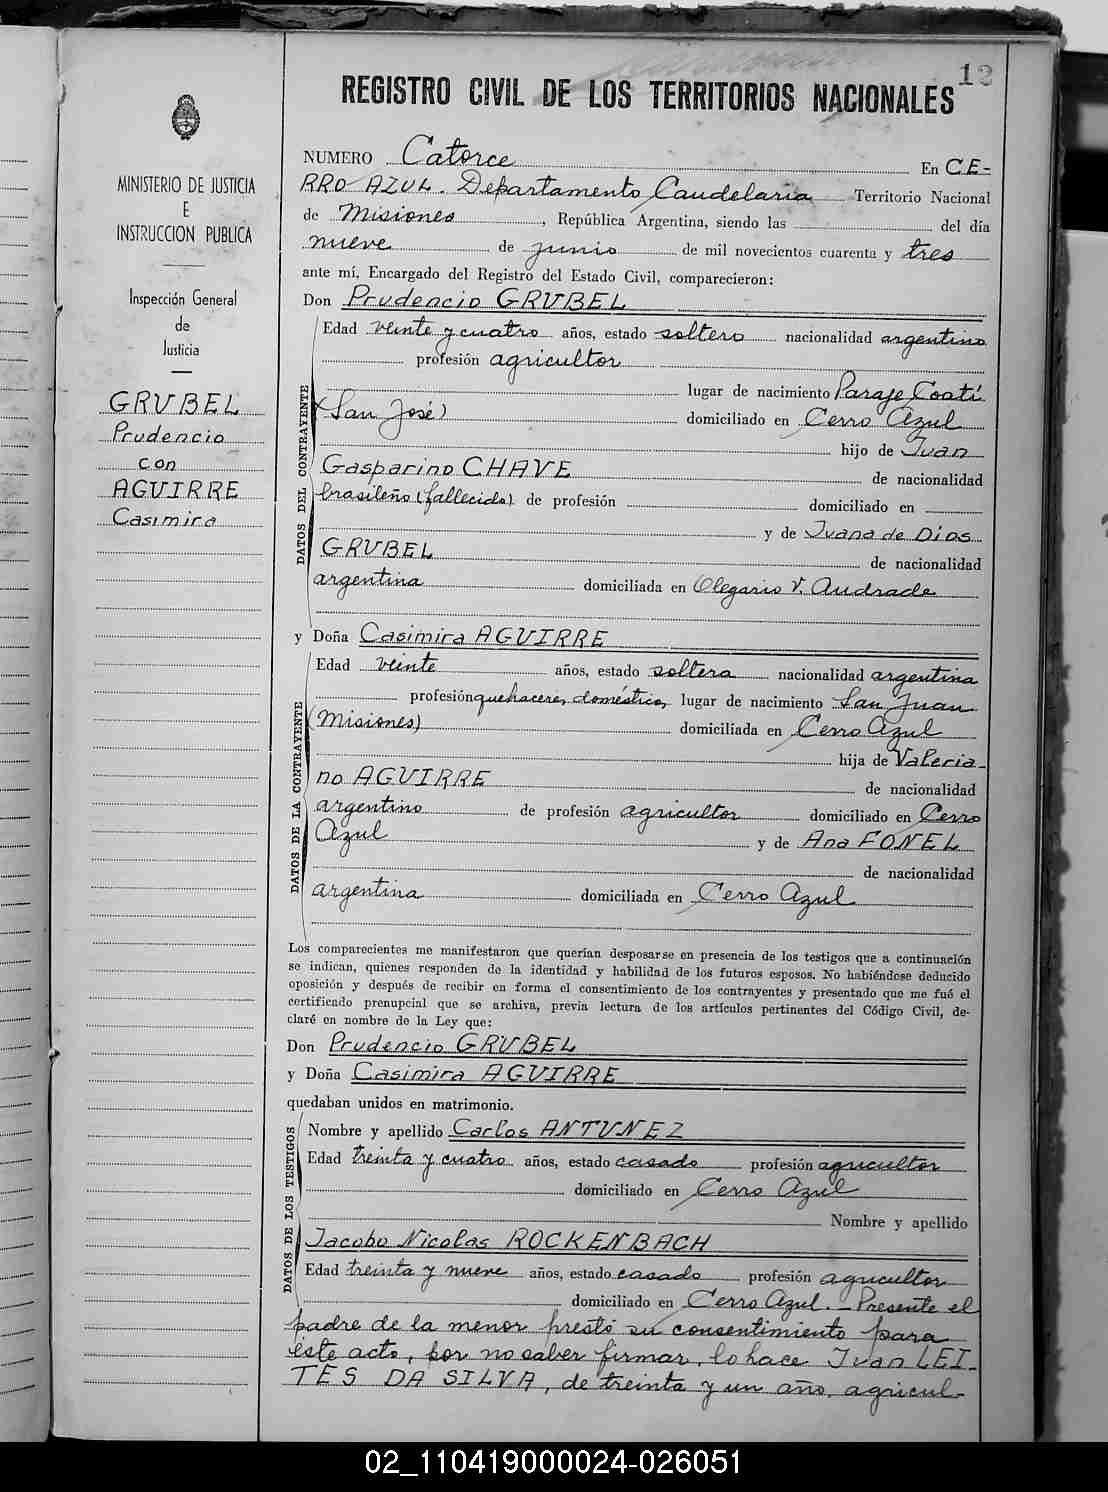 12
REGISTRO CIVIL DE LOS TERRITORIOS NACIONALES
MINISTERIO DE JUSTICIA
E
INSTRUCCION PUBLICA
Inspección General
de
Justicia
GRUBEL
Prudencio
con
AGUIRRE
Casimira
NUMERO Catorce En CE-
RRO AZUL. Departamento Candelaria Territorio Nacional
de Misiones, República Argentina, siendo las del día
nueve de junio de mil novecientos cuarenta y tres
ante mí, Encargado del Registro del Estado Civil, comparecieron:
Don Prudencio GRUBEL
DATOS DEL CONTRAYENTE
Edad veinte y cuatro años, estado soltero nacionalidad argentino
profesión agricultor
lugar de nacimiento Paraje Coatí
(San José) domiciliado en Cerro Azul
hijo de Juan
Gasparino CHAVE de nacionalidad
brasileño (fallecido) de profesión domiciliado en
y de Juana de Dios
GRUBEL de nacionalidad
argentina domiciliada en Olegario V. Andrade
y Doña Casimira AGUIRRE
DATOS DE LA CONTRAYENTE
Edad veinte años, estado soltera nacionalidad argentina
profesión quehaceres domésticos, lugar de nacimiento San Juan
(Misiones) domiciliada en Cerro Azul
hija de Valeria-
no AGUIRRE de nacionalidad
argentino de profesión agricultor domiciliado en Cerro
Azul y de Ana FONEL
de nacionalidad
argentina domiciliada en Cerro Azul
Los comparecientes me manifestaron que querían desposarse en presencia de los testigos que a continuación
se indican, quienes responden de la identidad y habilidad de los futuros esposos. No habiéndose deducido
oposición y después de recibir en forma el consentimiento de los contrayentes y presentado que me fué el
certificado prenupcial que se archiva, previa lectura de los artículos pertinentes del Código Civil, de-
claré en nombre de la Ley que:
Don Prudencio GRUBEL
y Doña Casimira AGUIRRE
quedaban unidos en matrimonio.
DATOS DE LOS TESTIGOS
Nombre y apellido Carlos ANTUNEZ
Edad treinta y cuatro años, estado casado profesión agricultor
domiciliado en Cerro Azul
Nombre y apellido
Jacobo Nicolas ROCKENBACH
Edad treinta y nueve años, estado casado profesión agricultor
domiciliado en Cerro Azul. — Presente el
padre de la menor prestó su consentimiento para
éste acto, por no saber firmar, lo hace Juan LEI-
TES DA SILVA, de treinta y un año, agricul-
02_110419000024-026051